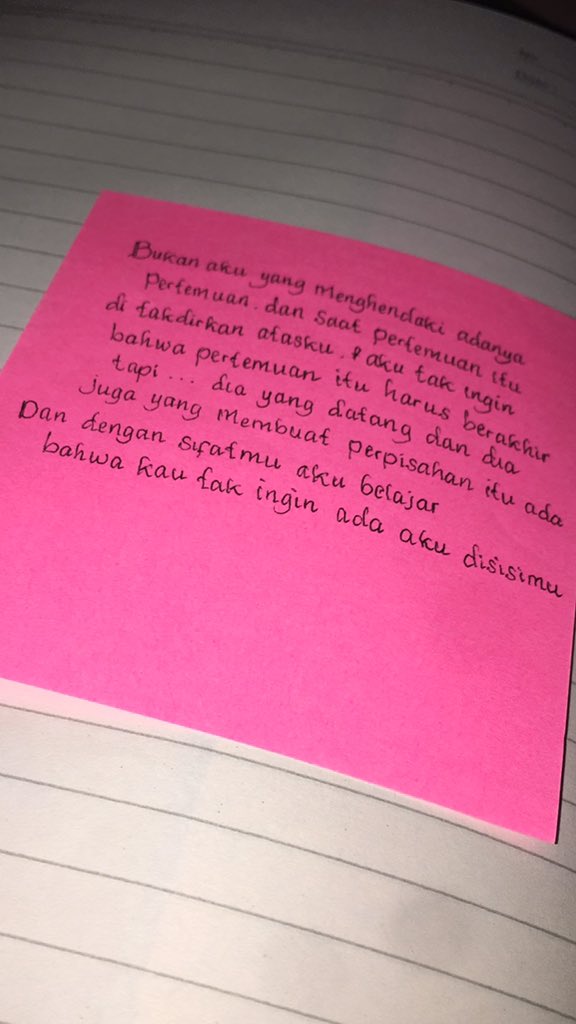 Bukan aku yang menghendaki adanya
Pertemuan. dan saat pertemuan itu
di takdirkan atasku. aku tak ingin
bahwa pertemuan itu harus berakhir
tapi... dia yang datang dan dia
juga yang membuat perpisahan itu ada
Dan dengan sifatmu aku belajar
bahwa kau tak ingin ada aku disisimu